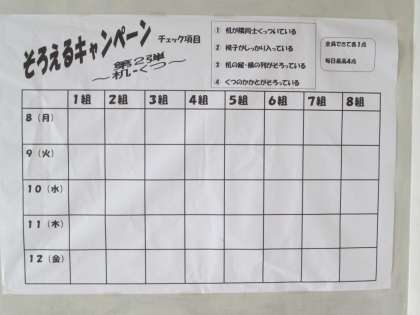 そろえるキャンペーン
第2弾
～机・くつ～
チェック項目
① 机が隣同士くっついている
② 椅子がしっかり入っている
③ 机の縦・横の列がそろっている
④ くつのかかとがそろっている
全員できて各1点
毎日最高4点
1組 2組 3組 4組 5組 6組 7組 8組
8（月）
9（火）
10（水）
11（木）
12（金）